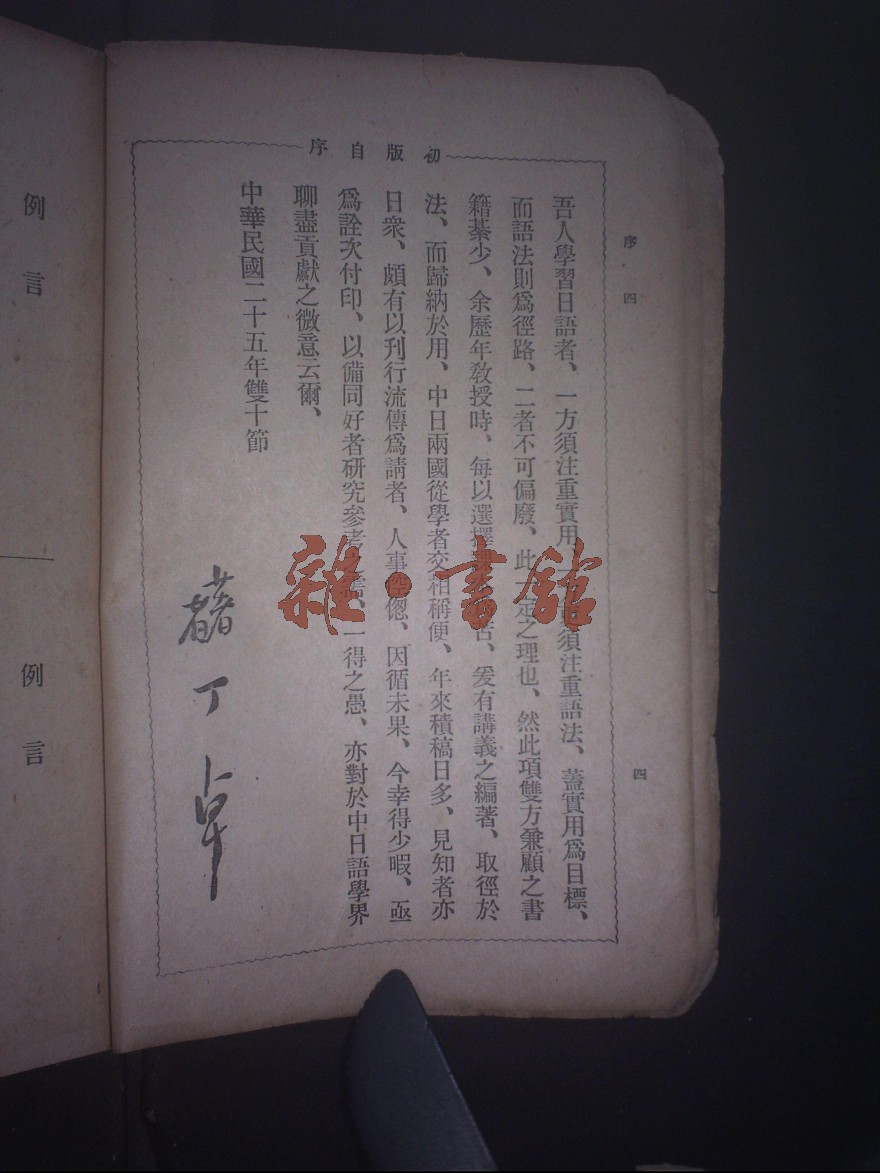 初版自序
吾人學習日語者、一方須注重實用、須注重語法、蓋實用爲目標、
而語法則爲徑路、二者不可偏廢、此一定之理也、然此項雙方兼顧之書
籍綦少、余歷年教授時、每以選擇爲苦、爰有講義之編著、取徑於
法、而歸納於用、中日兩國從學者交相稱便、年來積稿日多、見知者亦
日衆、頗有以刊行流傳爲請者、人事倥偬、因循未果、今幸得少暇、亟
爲詮次付印、以備同好者研究參考之需、一得之愚、亦對於中日語學界
聊盡貢獻之微意云爾、
中華民國二十五年雙十節
丁卓
序 四
四
例言
例言
雜·書館